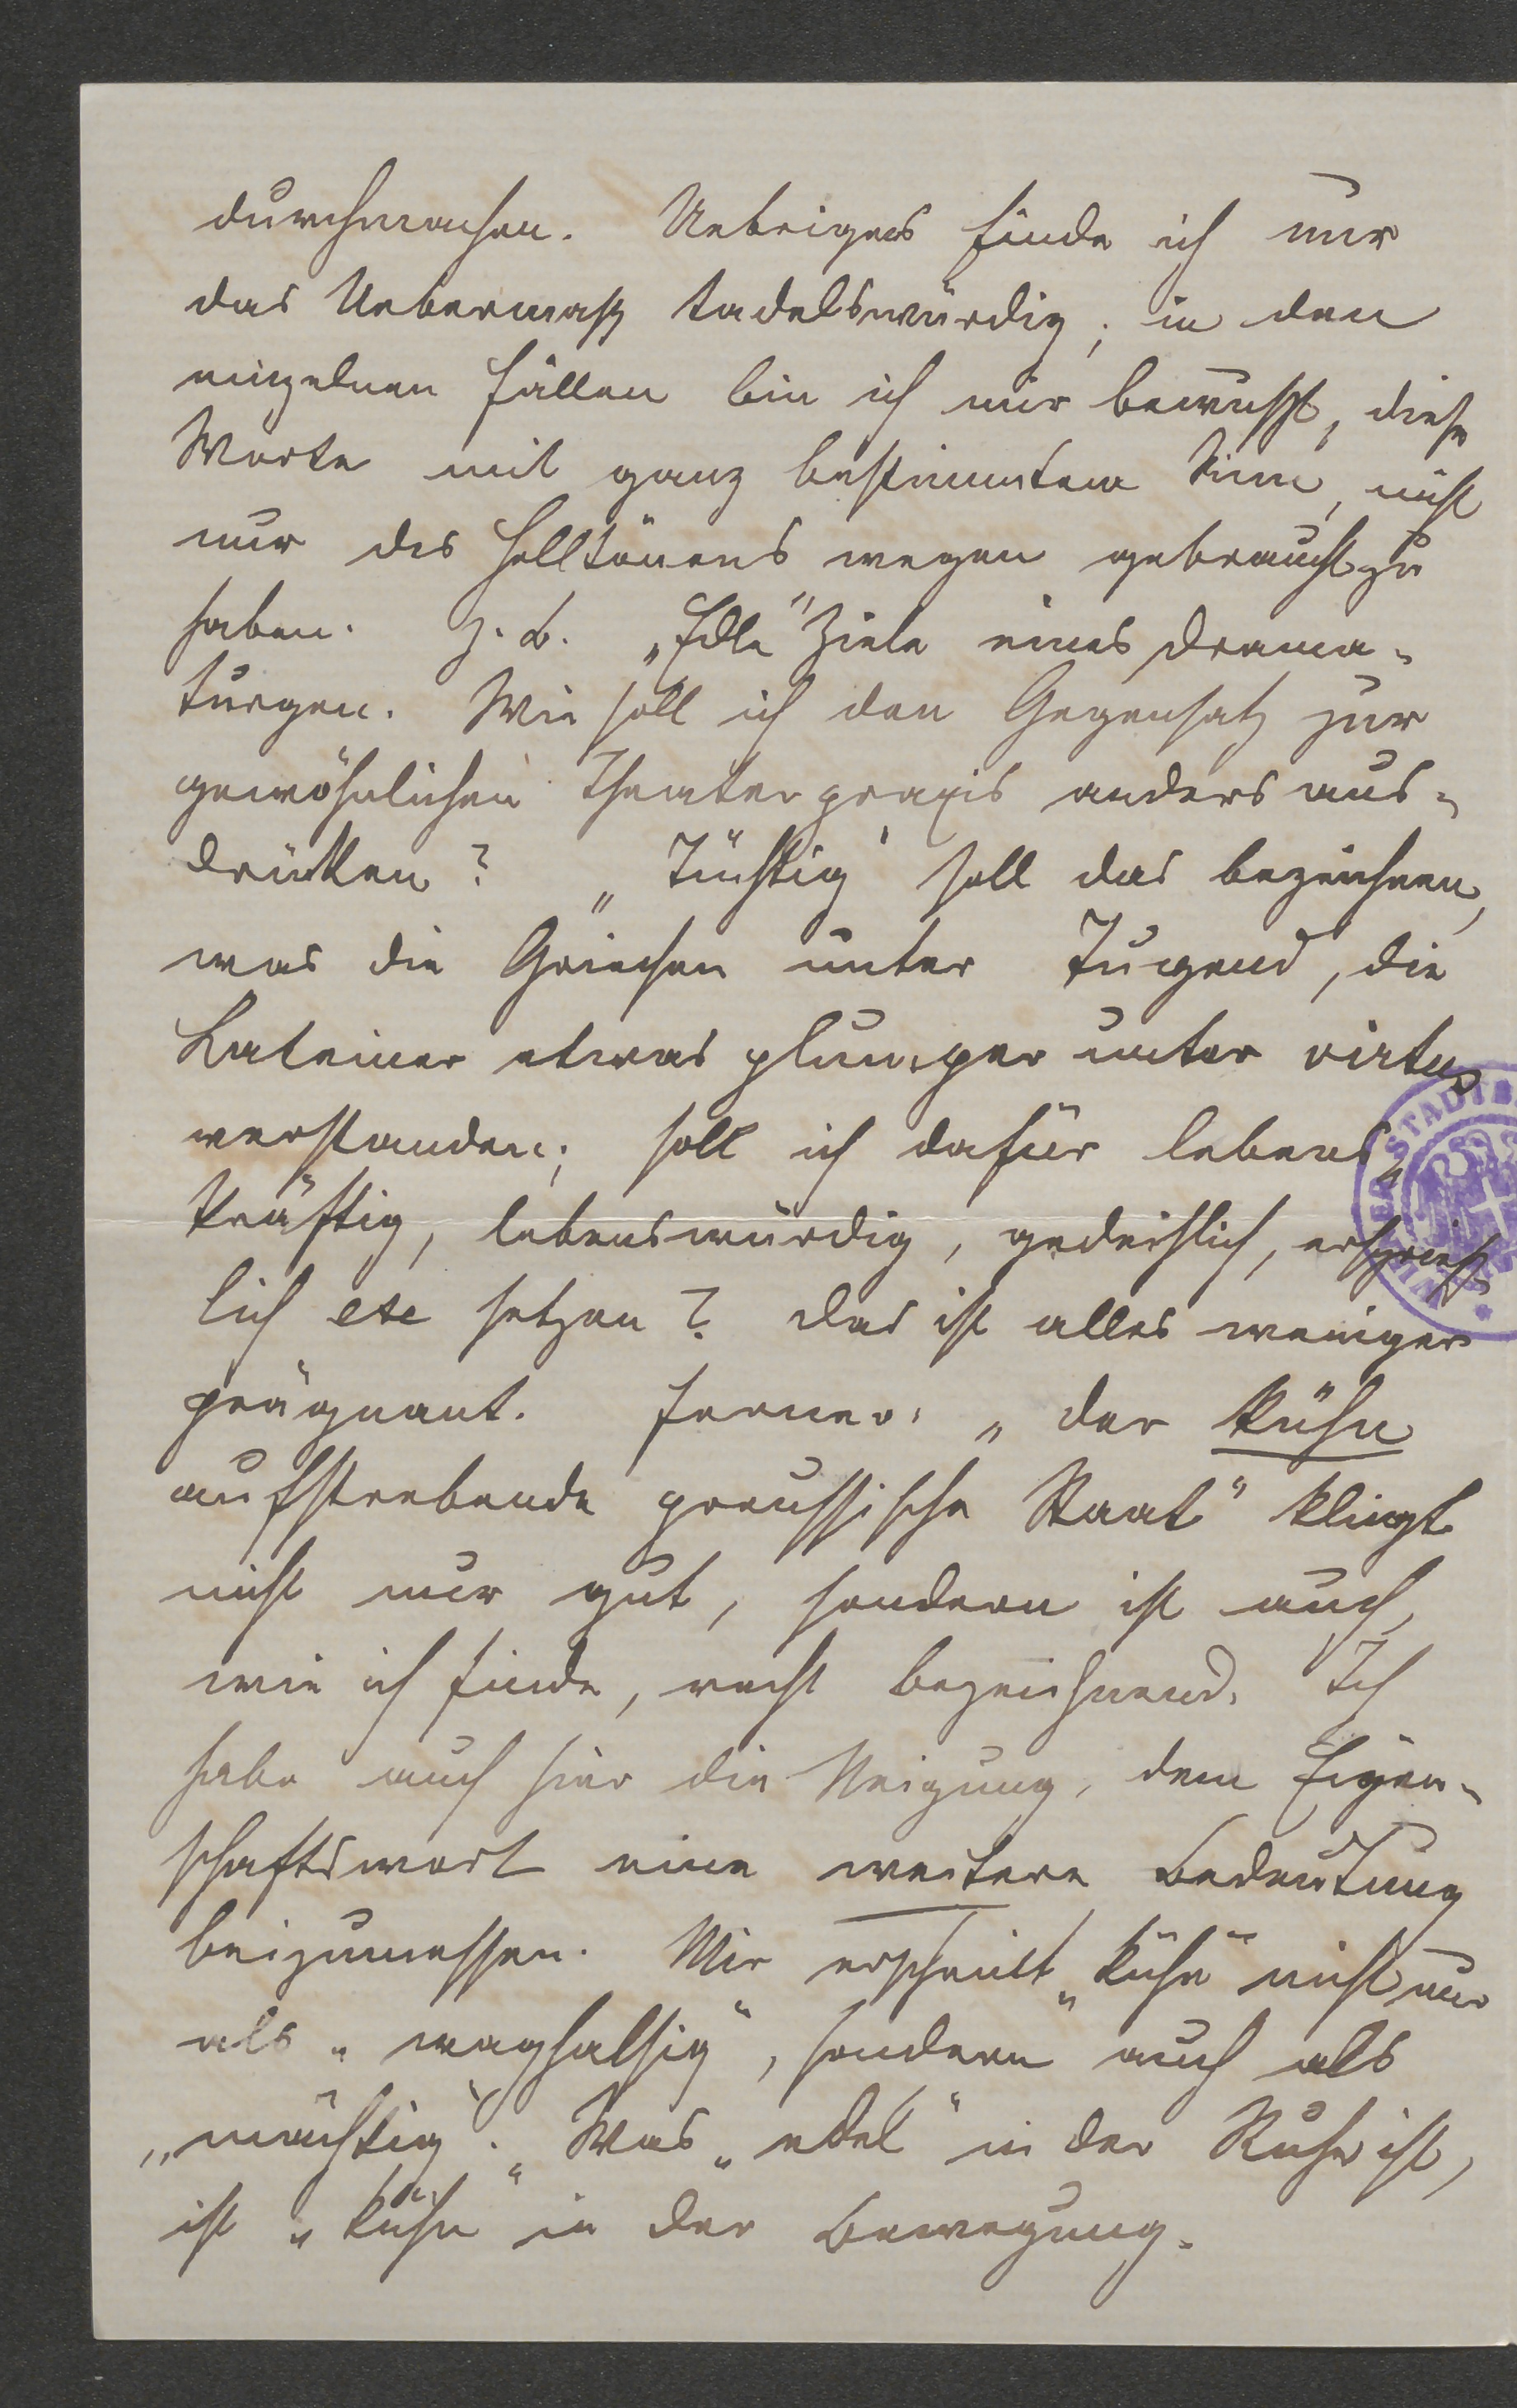 durchmachen. Uebrigens finde ich nur
das Uebermaß tadelswürdig; in den
einzelnen Fällen bin ich mir bewußt, diese
Worte mit ganz bestimmtem Sinn, nicht
nur des Helltönens wegen gebraucht zu
haben. Z. B. „Edle" Ziele eines Drama-
turgen. Wie soll ich den Gegensatz zur
gewöhnlichen Theaterpraxis anders aus-
drücken? „Tüchtig" soll das bezeichnen,
was die Griechen unter Tugend, die
Lateiner etwas plumper unter virtus
verstanden; soll ich dafür lebens-
kräftig, lebenswürdig, gedeihlich, ersprieß-
lich etc setzen? Das ist alles weniger
prägnant. Ferner: „der kühn
aufstrebende preussische Staat" klingt
nicht nur gut, sondern ist auch,
wie ich finde, recht bezeichnend. Ich
habe auch hier die Neigung, dem Eigen-
schaftswort eine weitere Bedeutung
beizumessen. Mir erscheint „kühn" nicht nur
als „waghalsig", sondern auch als
„mächtig". Was „edel" in der Ruhe ist,
ist „kühn" in der Bewegung.
STADTB